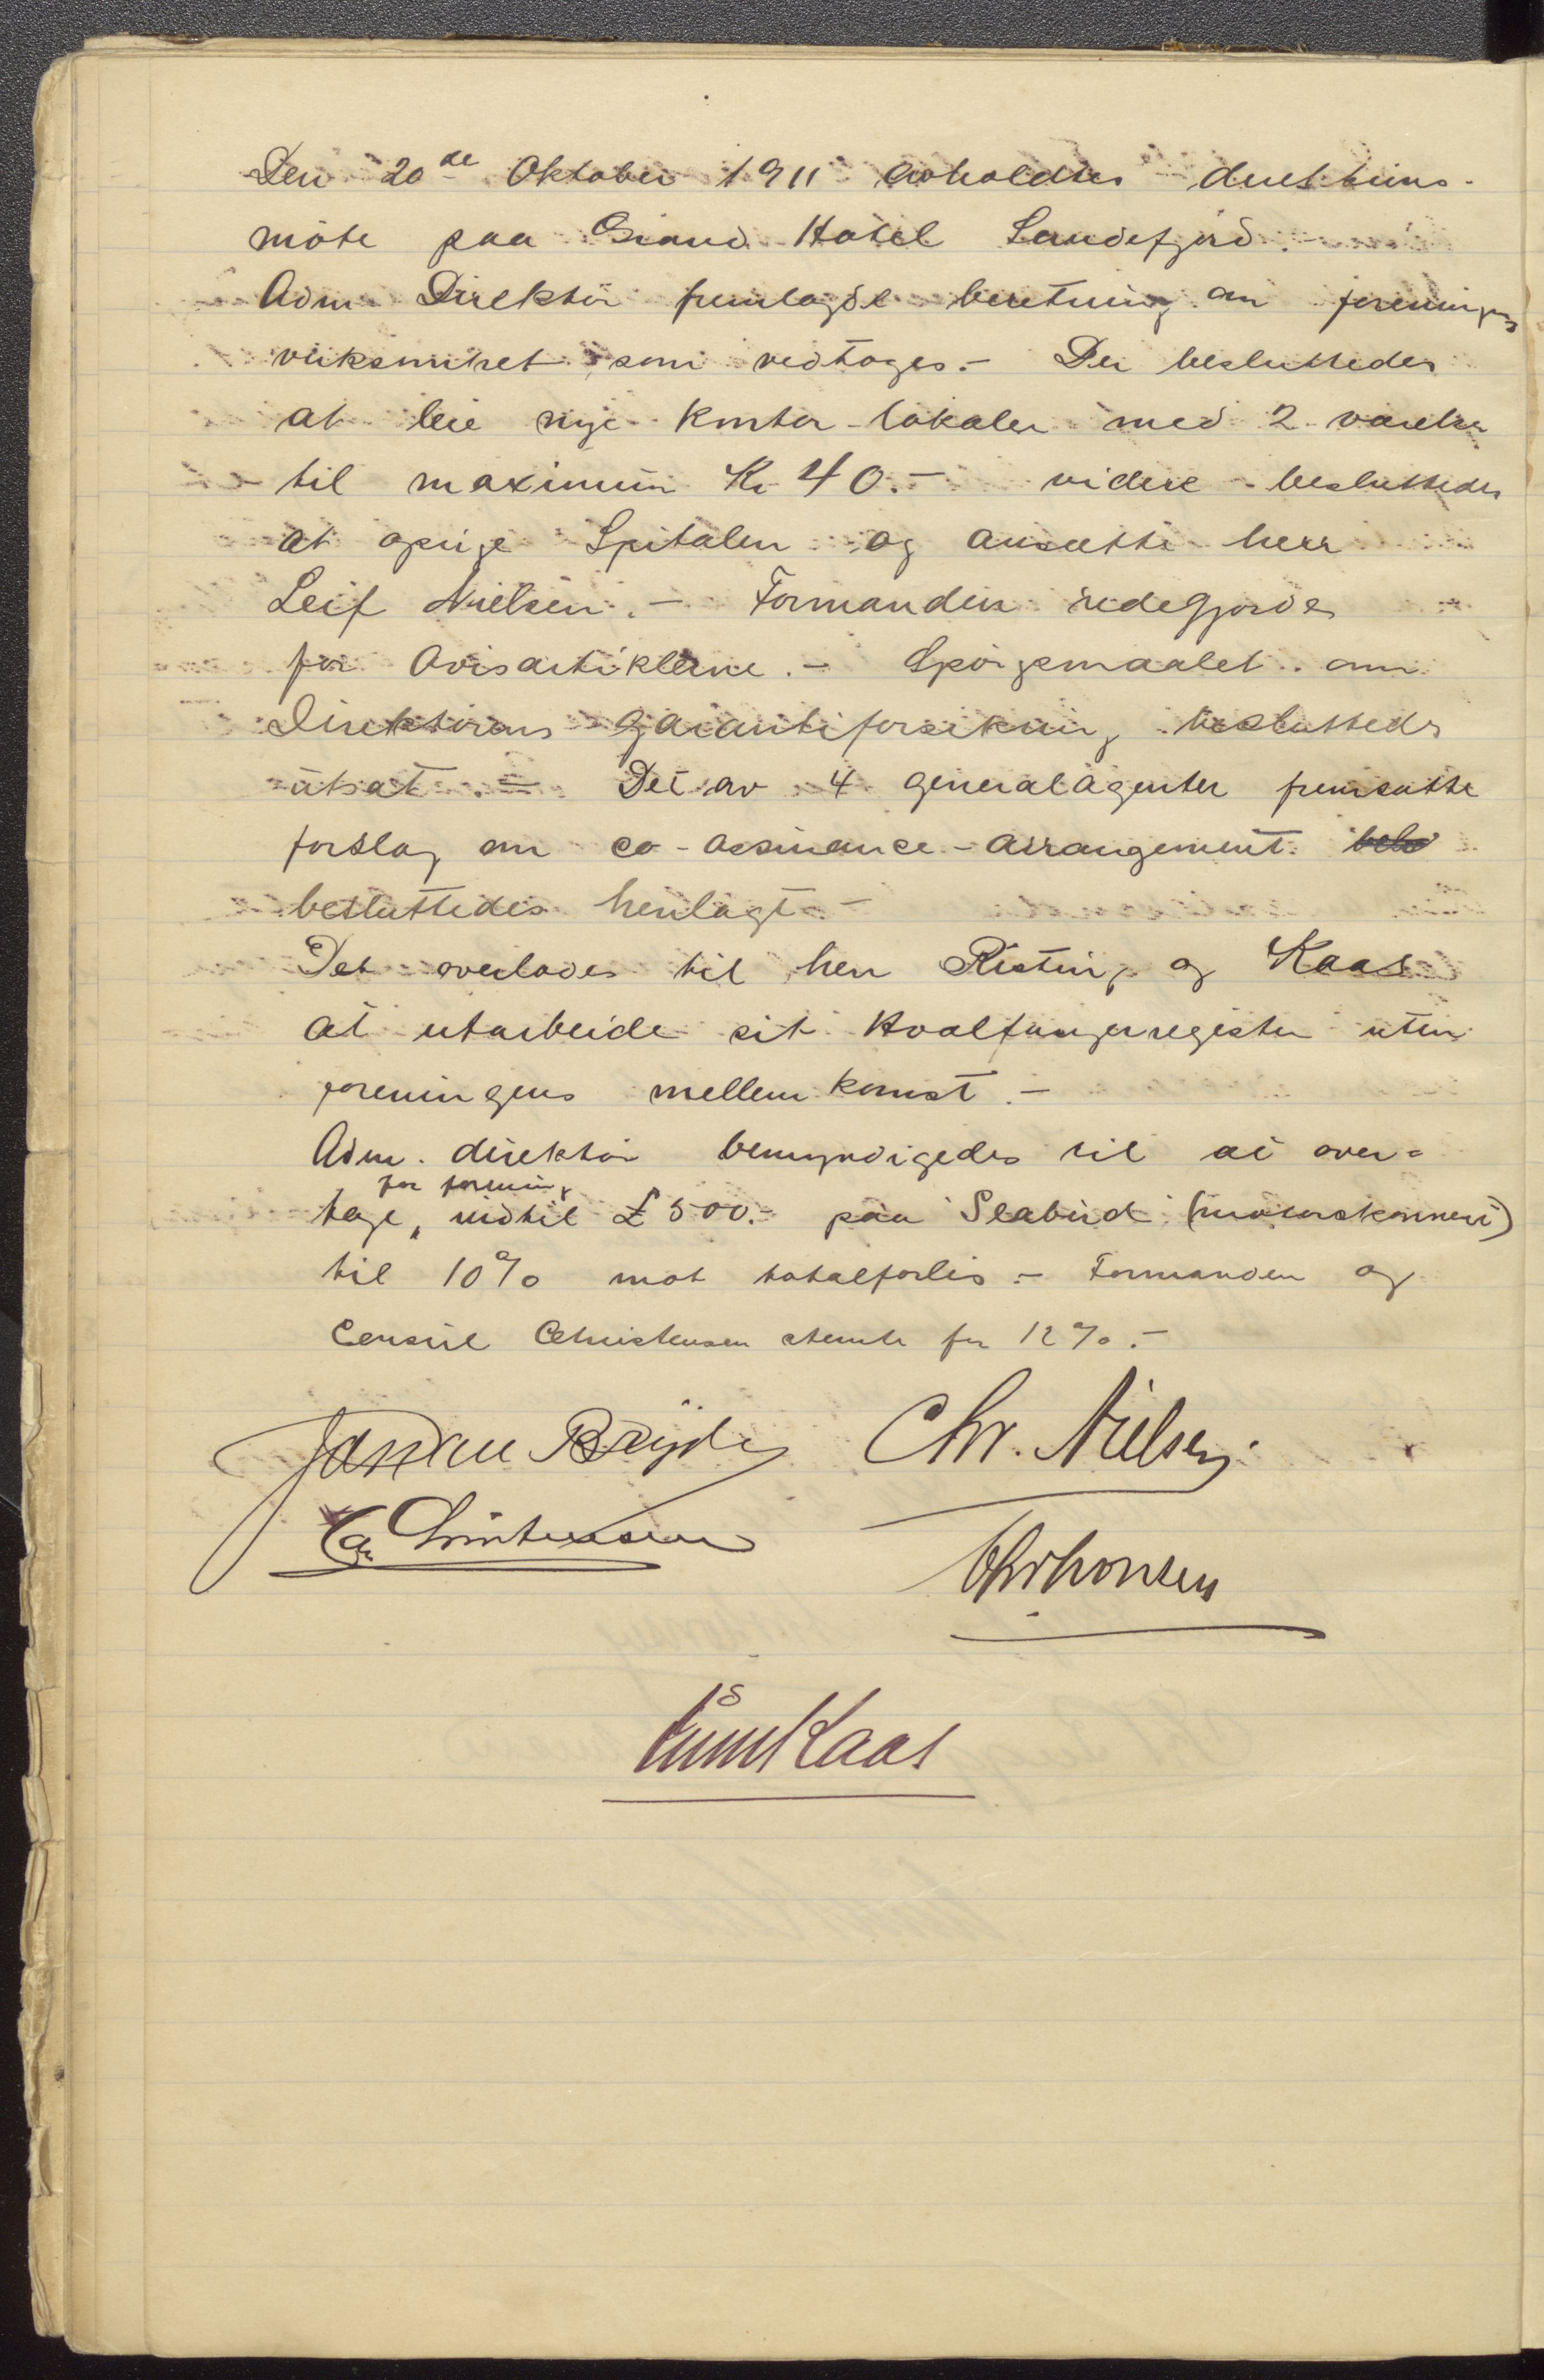 Den 20de Oktober 1911 avholdtes direktions-
møte paa Grand Hotel Sandefjord.-
Adm Direktør fremlagde beretning om foreningens
virksomhet som vedtoges.- Der besluttedes
at leie nye kontor-lokaler med 2 værelser
til maximum Kr 40.- videre besluttedes
at opsige Spitalen og ansætte herr
Leif Nielsen.- Formanden redegjorde
for Avisartiklerne.- Spørgsmaalet om
Direktørens Garantiforsikring besluttedes
utsat.- Det av 4 generalagenter fremsatte
forslag om co-assurance-arrangement
besluttedes henlagt-
Det overlodes til herr Risting og Kaas
at utarbeide sit Hvalfangerregister uten
foreningens mellemkomst.-
Adm. direktør bemyndigedes til at over-
for forening
tage, indtil £500.- paa Seabird (motorskonnert)
til 10% mot totalforlis.- Formanden og
Consul Christensen stemte for 12%.-
Johan Bryde Chr. Nielsen.
Christensen
Thv Thorsen
Kaas